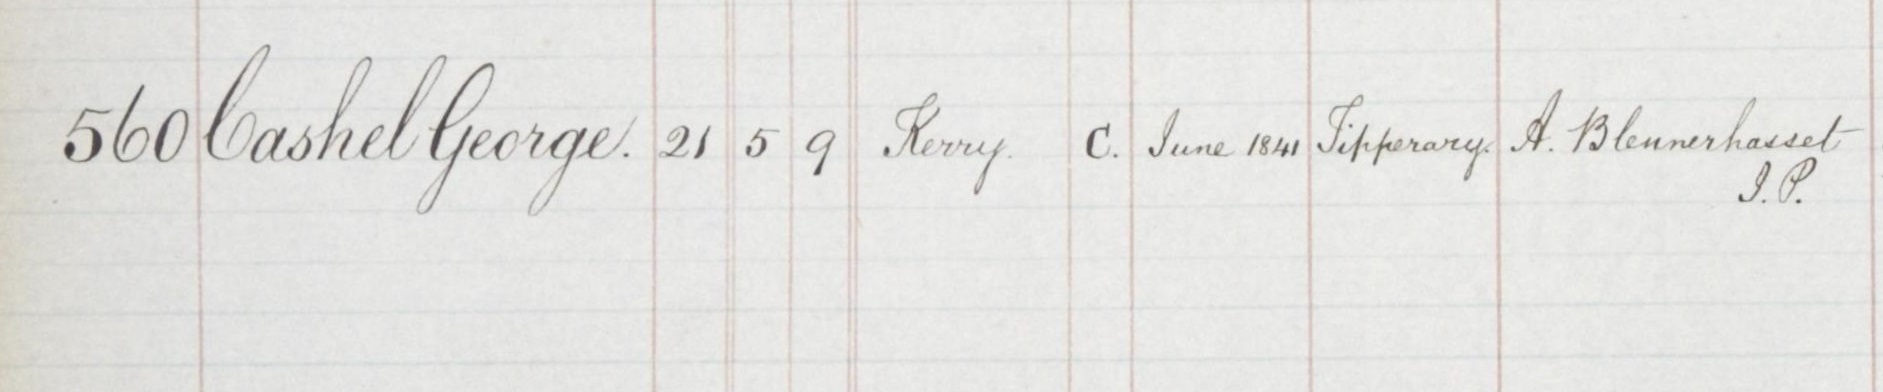 560 Cashel George. 21 5 9 Kerry. C. June 1841 Tipperary. A. Blennerhasset
J. P.